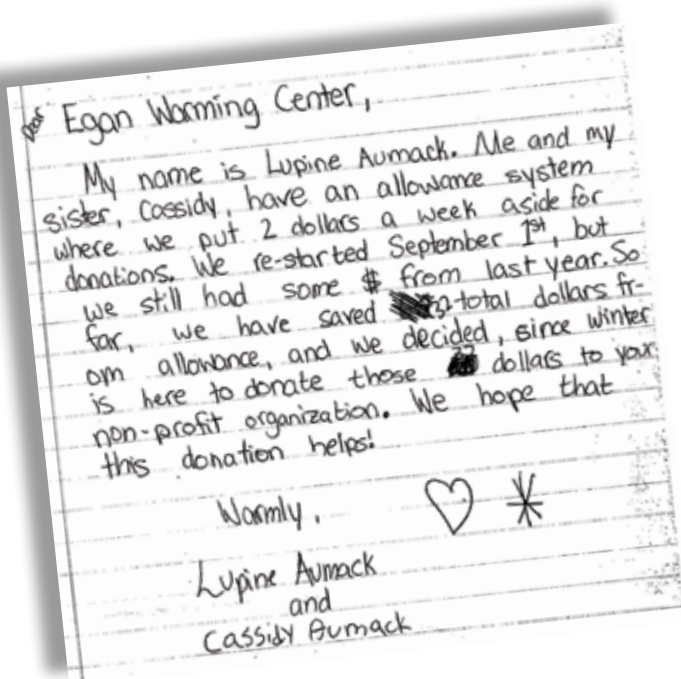 Dear Egan Warming Center,
My name is Lupine Aumack. Me and my
sister, Cassidy, have an allowance system
where we put 2 dollars a week aside for
donations. We re-started September 1st, but
we still had some $ from last year. So
far, we have saved total dollars fr-
om allowance, and we decided, since winter
is here to donate those dollars to your
non-profit organization. We hope that
this donation helps!
Warmly,
Lupine Aumack
and
Cassidy Aumack